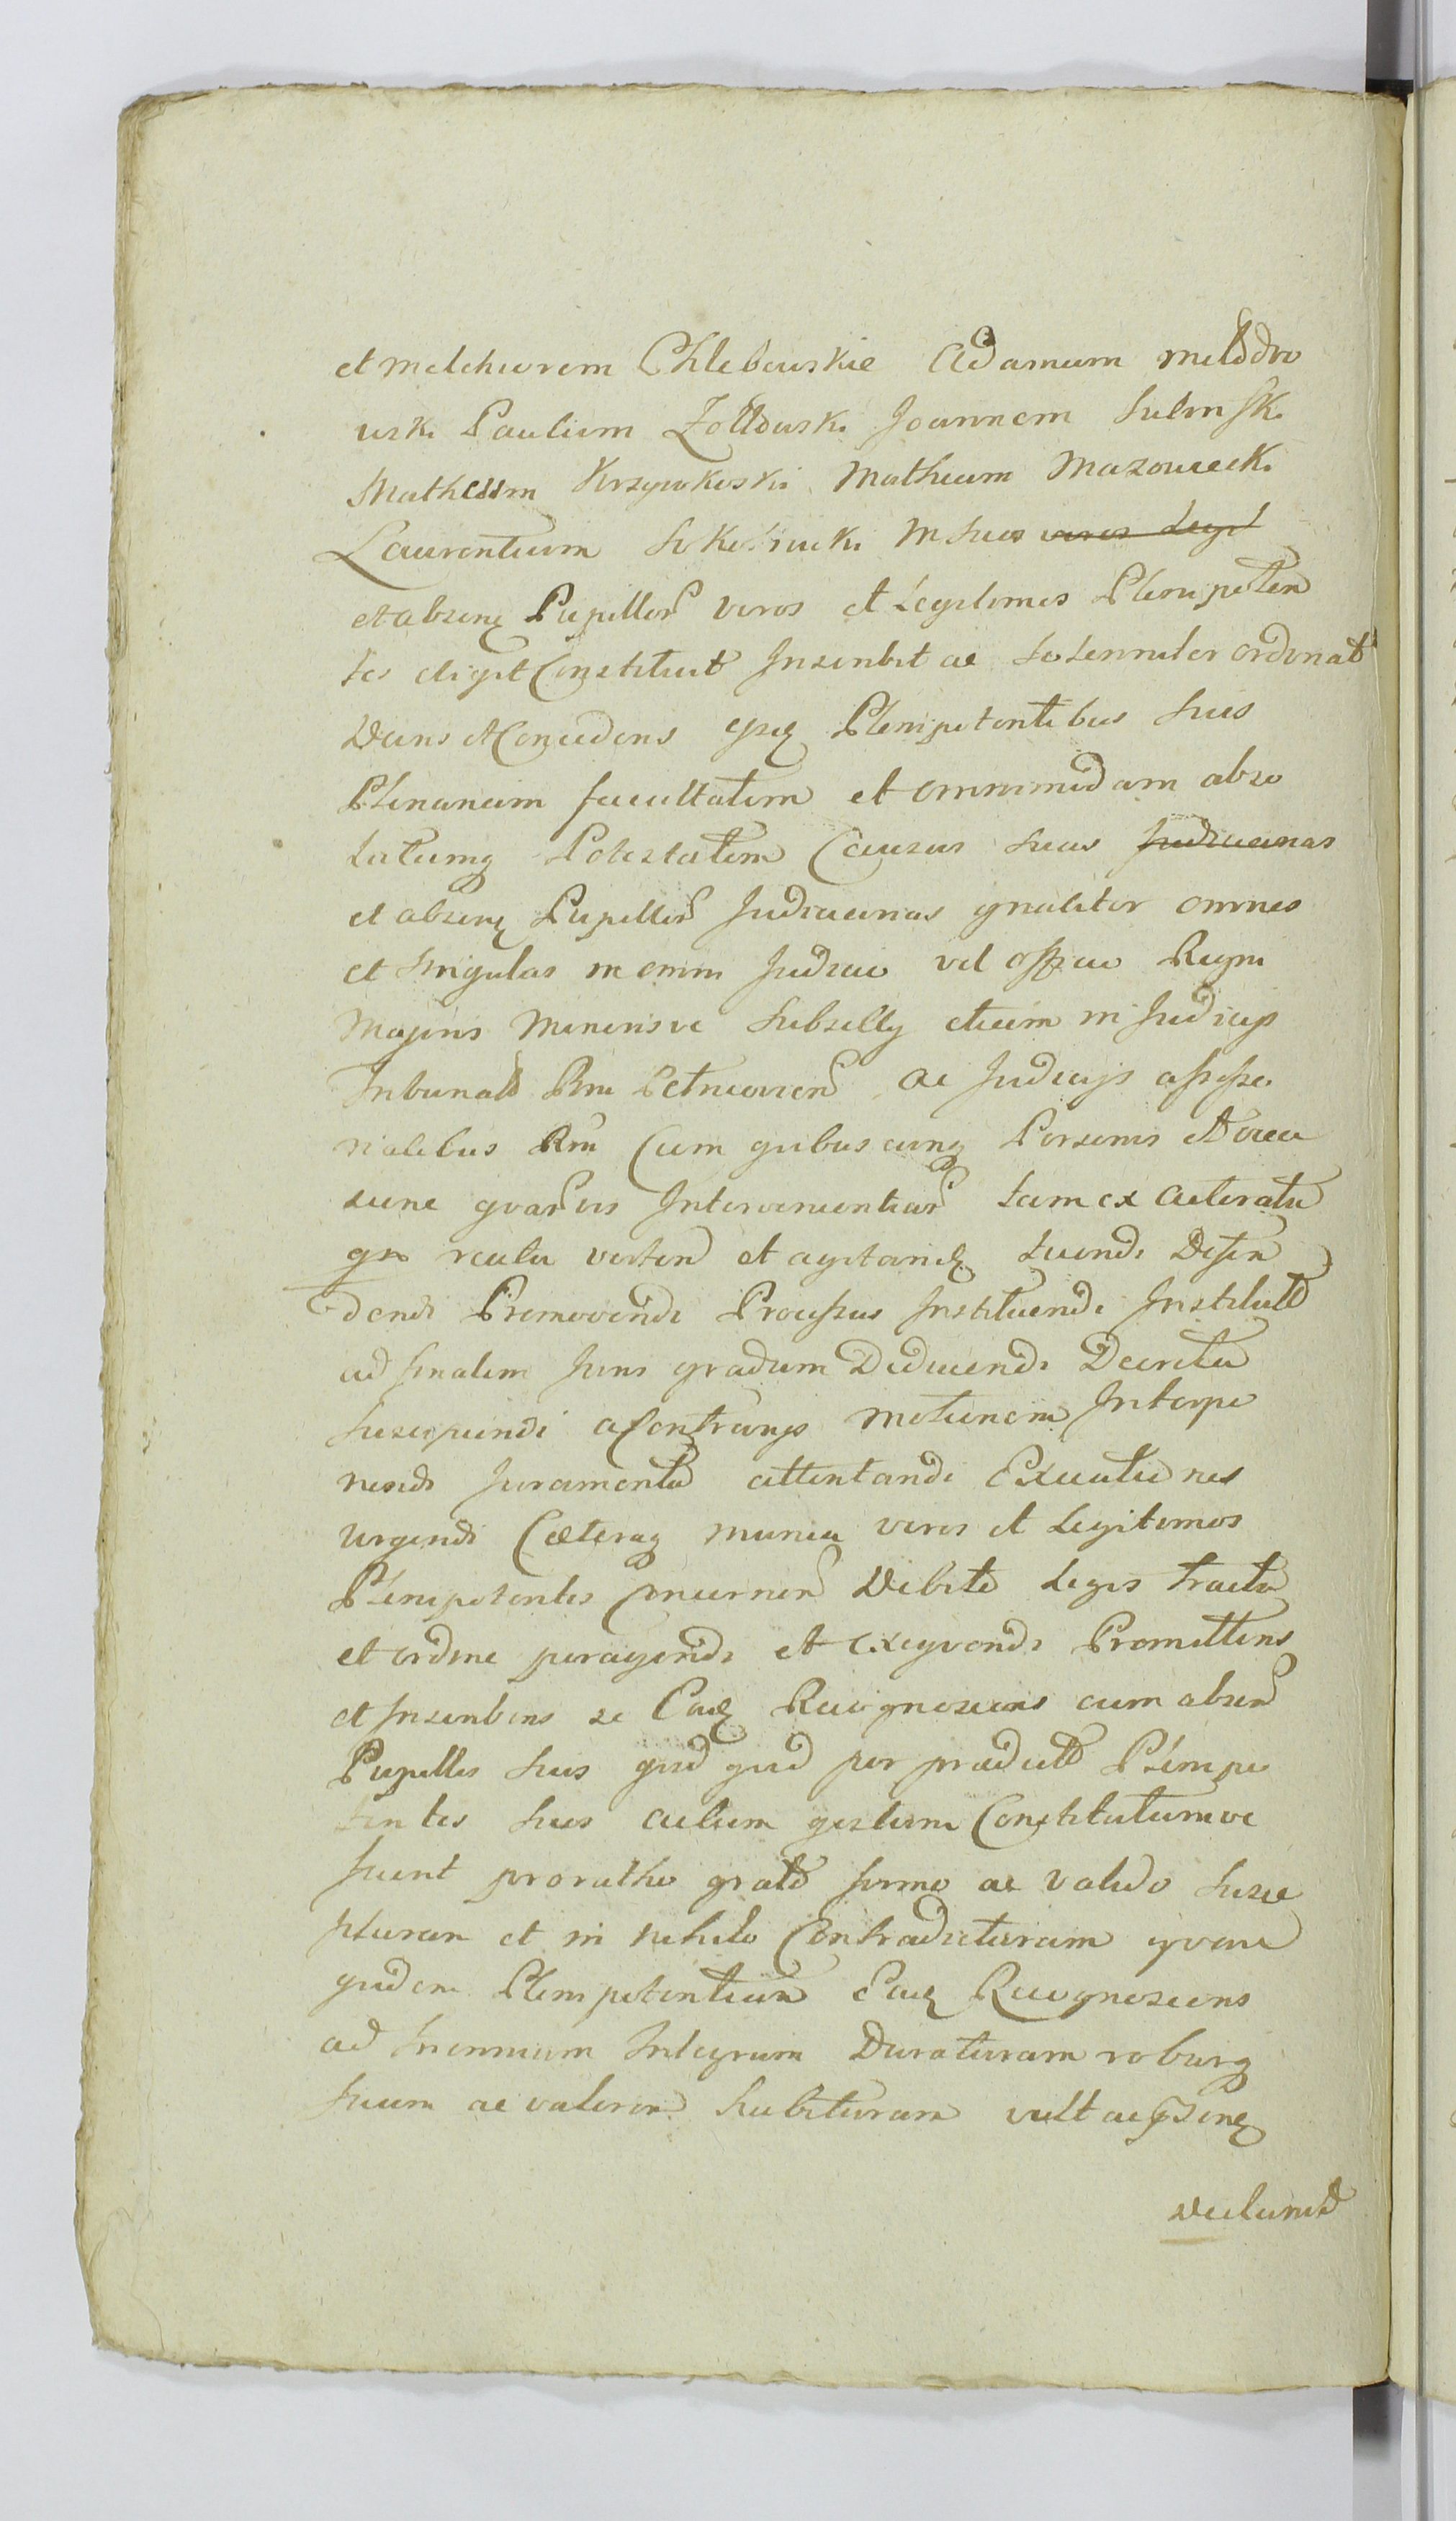 et Melchiorem Chlebowskie Adamum Mlodzia
wski Paulum Zołtowski Joannem Sulinski
Matheum Krzywkoski Matheum Mazowiecki
Laurentium in suos viros Legit
et absenq Pupillor veros et Legitimos Plenipoten
tes eligit Constituit Inscribit ac solenniter ordinat
Dans et Concedens ipsis Plenipotentibus suis
Plenariam facultatem et omnimodam abso
lutamq Potestatem Causas suas Judiciarias
et absenq Pupillor Judiciarias gnaliter omnes
et singulas in omni Judicio vel officio Regni
Majoris Minorisve Subsellij etiam in Judicijs
Tribunalt Rni Petricovien ac Judicijs assesso
rialibus Rni Cum quibus cunq Personis et occa
sione quarvis Intervenientiar tam ex
gx reali verten et agitand tuendi Defen
dendi Promovendi Processus Instituendi Institut
ad finalem Juris gradum Deducendi Decreta
suscipiendi a Contrarijs Motionem Interpo
nendi Juramenta attentandi Executiones
urgendi Caeteraq munia veros et Legitimos
Plenipotentes Concernen Debite Legis tractu
et ordine peragendi et Exequendi Promittens
et Inscribens se Eadq Recognoscens cum absen
Pupillis suis quid quid per praedict Plenipo
tentes suos actum gestum Constitutumve
fuerit pro ratho grato firmo ac valido susce
pturam et in nihilo Contradicturam quam
quidem Plenipotentiam Eadq Recognoscens
ad triennium Integrum Duraturam roburq
suum ac valorem habituram vult ac psenq